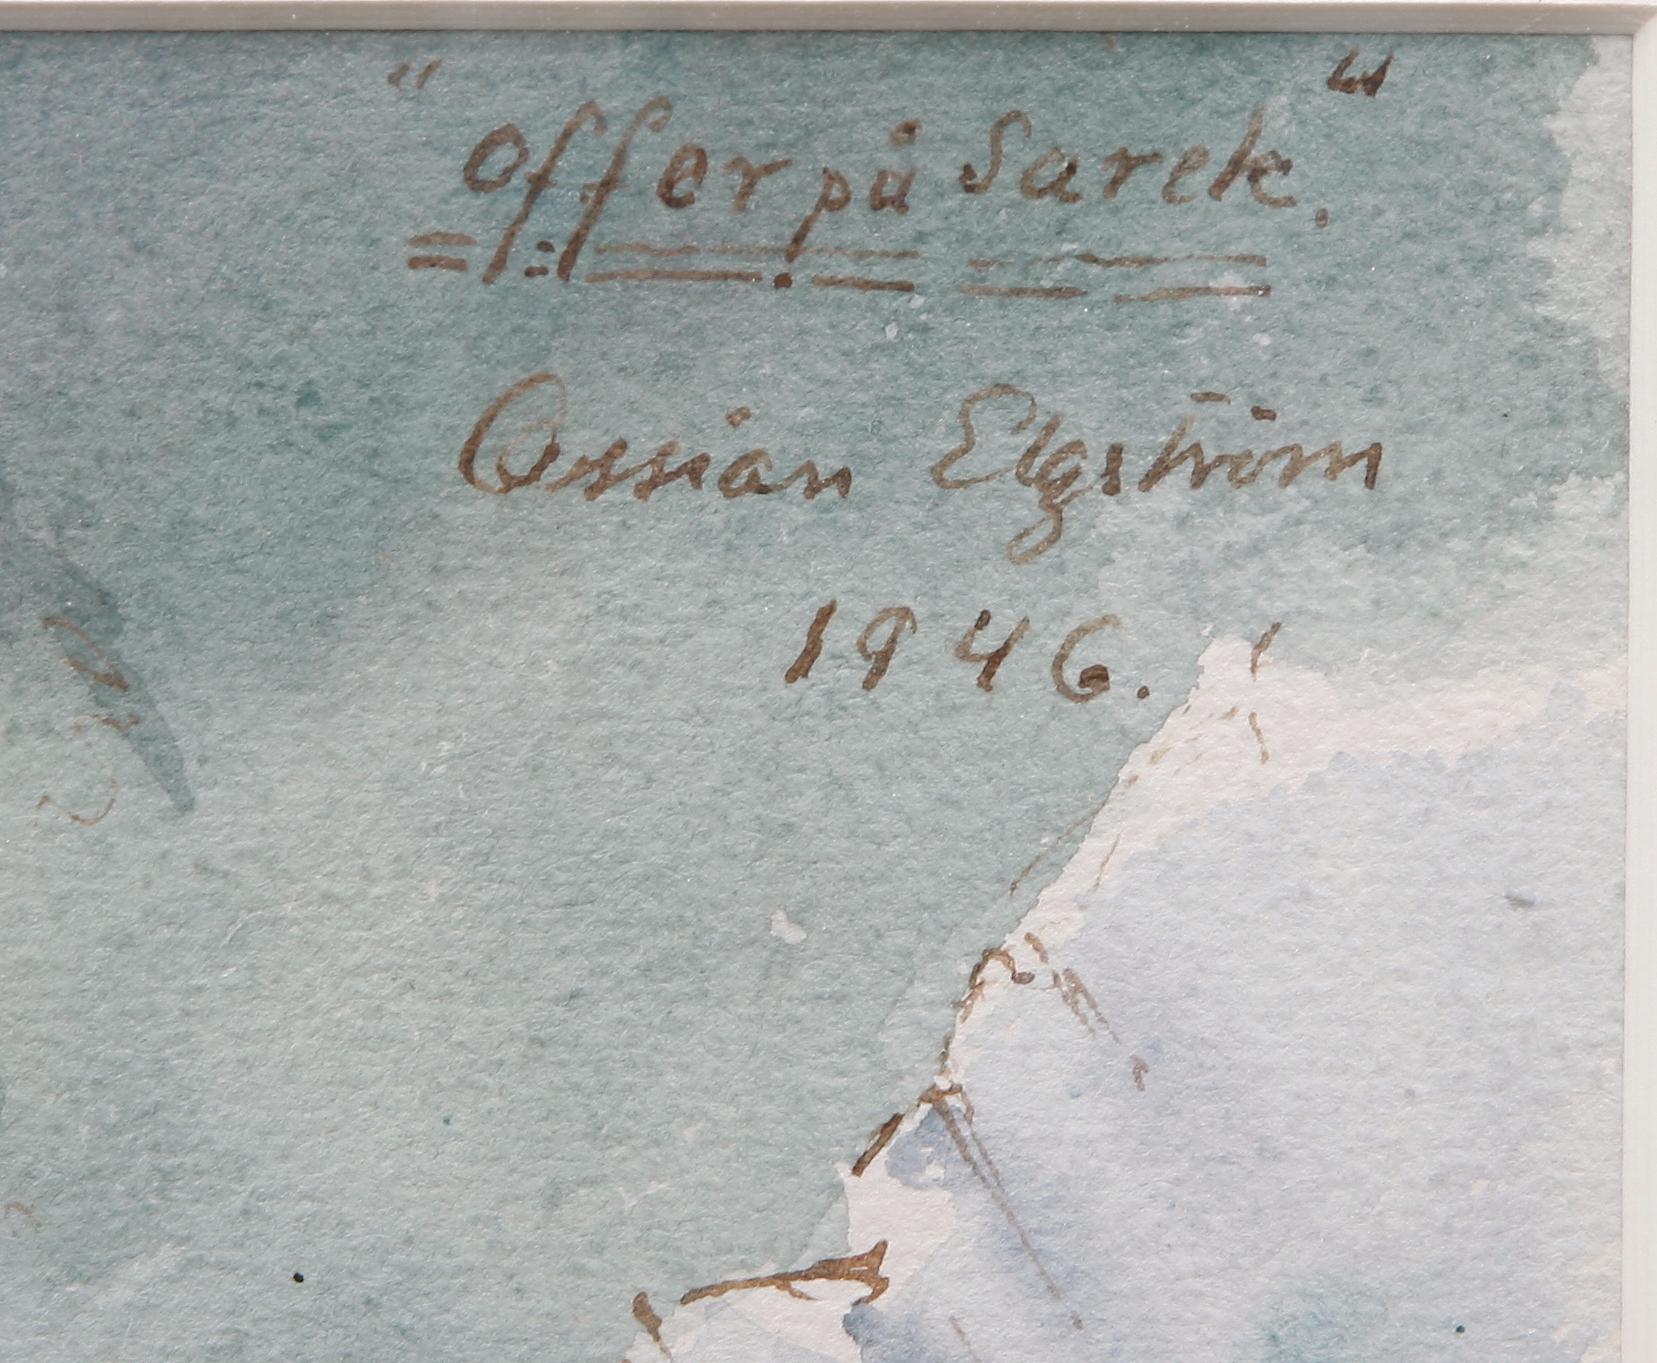 "Offer på Sarek."
Ossian Elgström
1946.